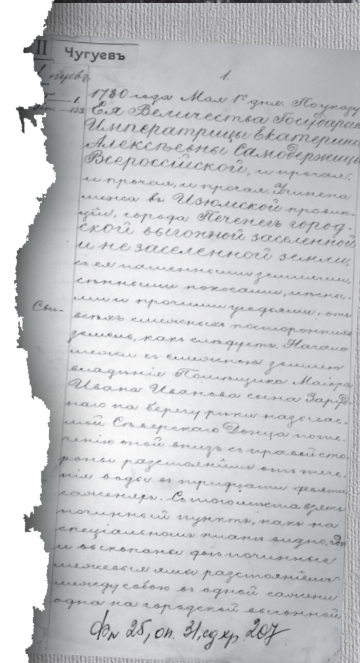 II Чугуевъ
1.
1780 года Мая 1го дня По указу
Ея Величества Государын
Императрицы Екатерины
Алексѣевны Самодержицы
Всероссійской, и прочая,
и прочая, и прочая. Учинена
межа въ Изюмской провин-
ціи, города Печенегъ город-
ской выгонной заселенной
и не заселенной земли,
съ ея пашенными землями,
сѣнными покосами, лѣсны-
ми и прочими угодьями отъ
всѣхъ смежныхъ постороннихъ
земель, какъ слѣдуетъ. Начало
межи съ смежною землею
владѣнія Помѣщика Маіора
Ивана Иванова сына Зар
наго на берегу рѣки
Сѣверскаго Донца по тe-
ченію оной внизъ съ правой сто-
роны разстояніемъ отъ тече-
нія воды въ тридцати
саженяхъ. Съ того мѣста взятъ
пунктъ, какъ на
спеціальномъ планѣ видно,
и выкопаны двѣ
межевыя ямы разстояніемъ
между собою въ одной сажени
одна на городской выгонной
Фн 25, оп. 31, ед хр. 207